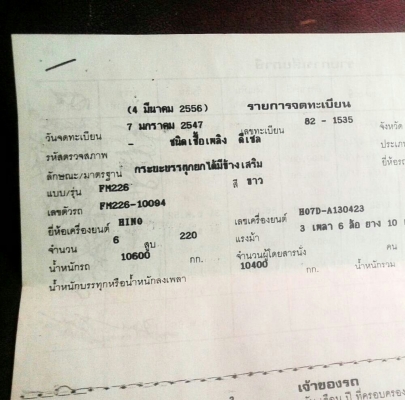 (4 มีนาคม 2556) รายการจดทะเบียน
วันจดทะเบียน 7 มกราคม 2547 เลขทะเบียน 82 - 1535 จังหวัด
รหัสตรวจสภาพ - ชนิดเชื้อเพลิง ดีเซล ประเภ
ลักษณะ/มาตรฐาน กระบะบรรทุกยกได้มีข้างเสริม ยี่ห้อรถ
แบบ/รุ่น FM226 สี ขาว
เลขตัวรถ FM226-10094 เลขเครื่องยนต์ H07D-A130423
ยี่ห้อเครื่องยนต์ HINO 3 เพลา 6 ล้อ ยาง 10
จำนวน 6 สูบ 220 แรงม้า คน
น้ำหนักรถ 10600 กก. จำนวนผู้โดยสารนั่ง 10400 กก. น้ำหนักรวม
น้ำหนักบรรทุกหรือน้ำหนักลงเพลา
เจ้าของรถ